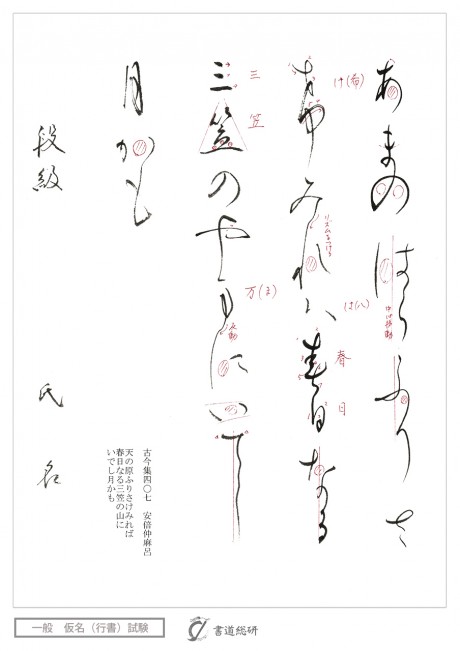 あまのはらふりさ
け(希)
は(八)
春日
希みれハ春日なる
リズムをつける
三
笠
万(ま)
三笠のやまにいてし
月かも
古今集四〇七 安倍仲麻呂
天の原ふりさけみれば
春日なる三笠の山に
いでし月かも
段級 氏名
一般 仮名（行書）試験
書道総研